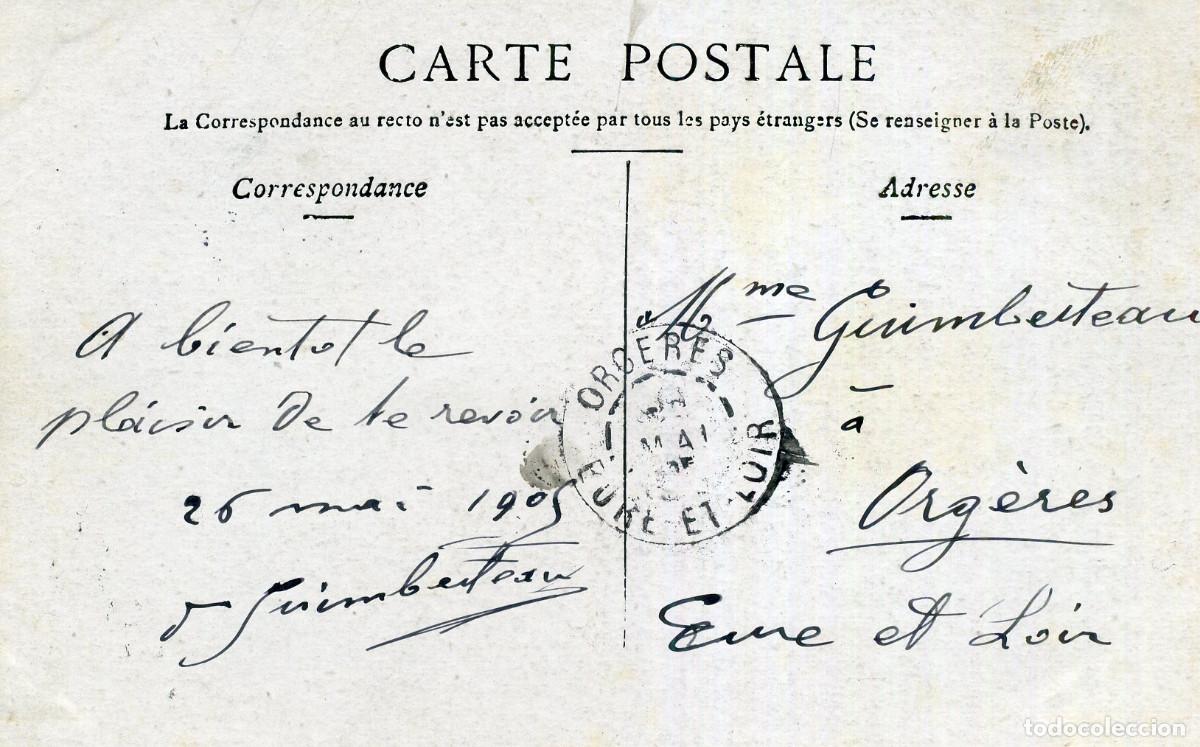 CARTE POSTALE
La Correspondance au recto n'est pas acceptée par tous les pays étrangers (Se renseigner à la Poste).
Correspondance
A bientot le
plaisir de te revoir
26 mai 1905
Guimberteau
Adresse
Mme Guimberteau
à
Orgères
Eure et Loir
ORGERES
MAI
05
EURE-ET-LOIR
todocoleccion